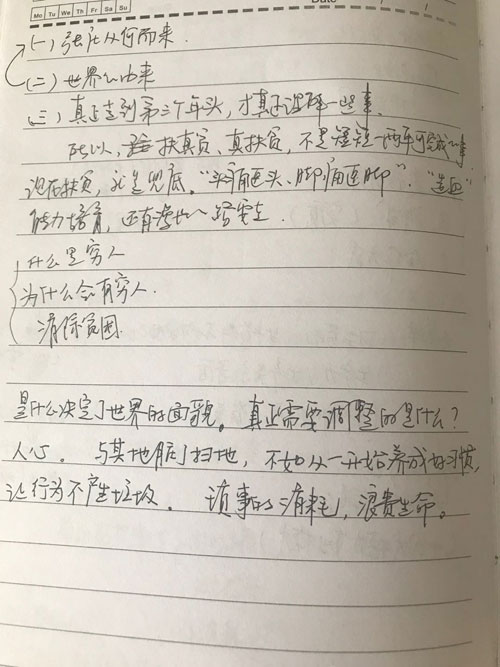 Mo Tu We Th Fr Sa Su Date
(一)从何而来.
(二)世界的由来
(三)真正走到第三个年头,才真正一些事.
所以,扶真贫、真扶贫,不是短短一两年可的事.
现在扶贫,就是兜底."头痛医头、脚痛医脚"."造血"
能力培育,还有一路要走.
什么是穷人
为什么会有穷人.
消除贫困.
是什么决定了世界的面貌。真正需要调整的是什么?
人心. 与其地脏了扫地,不如从一开始养成好习惯,
让行为不产生垃圾. 琐事的消耗,浪费生命。